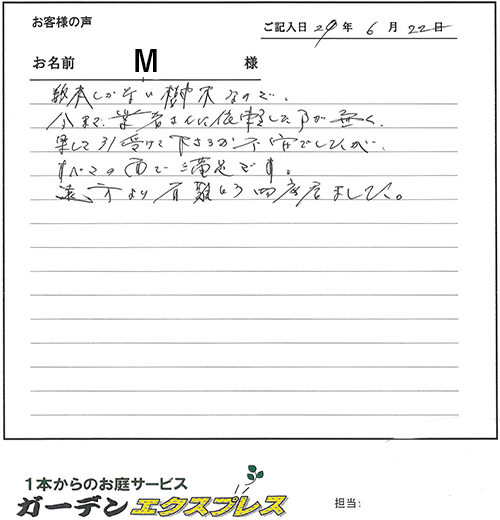 お客様の声
ご記入日 29年 6月 22日
お名前 M 様
数本しかない樹木なので、
今まで、業者さんに依頼した事が無く、
果して引受けて下さるか不安でしたが、
すべての面で満足です。
遠方より有難う御座居ました。
1本からのお庭サービス
ガーデンエクスプレス
担当: